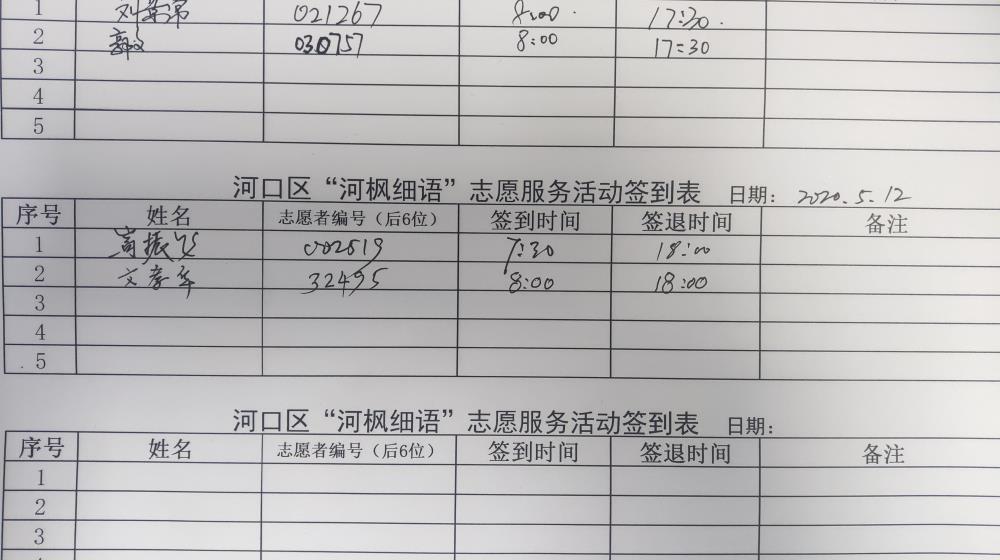 1 021267 8:00 17:30
2 郭文 030757 8:00 17:30
3
4
5
河口区“河枫细语”志愿服务活动签到表 日期: 2020.5.12
序号 姓名 志愿者编号（后6位） 签到时间 签退时间 备注
1 002519 7:30 18:00
2 文彦华 32495 8:00 18:00
3
4
5
河口区“河枫细语”志愿服务活动签到表 日期:
序号 姓名 志愿者编号（后6位） 签到时间 签退时间 备注
1
2
3